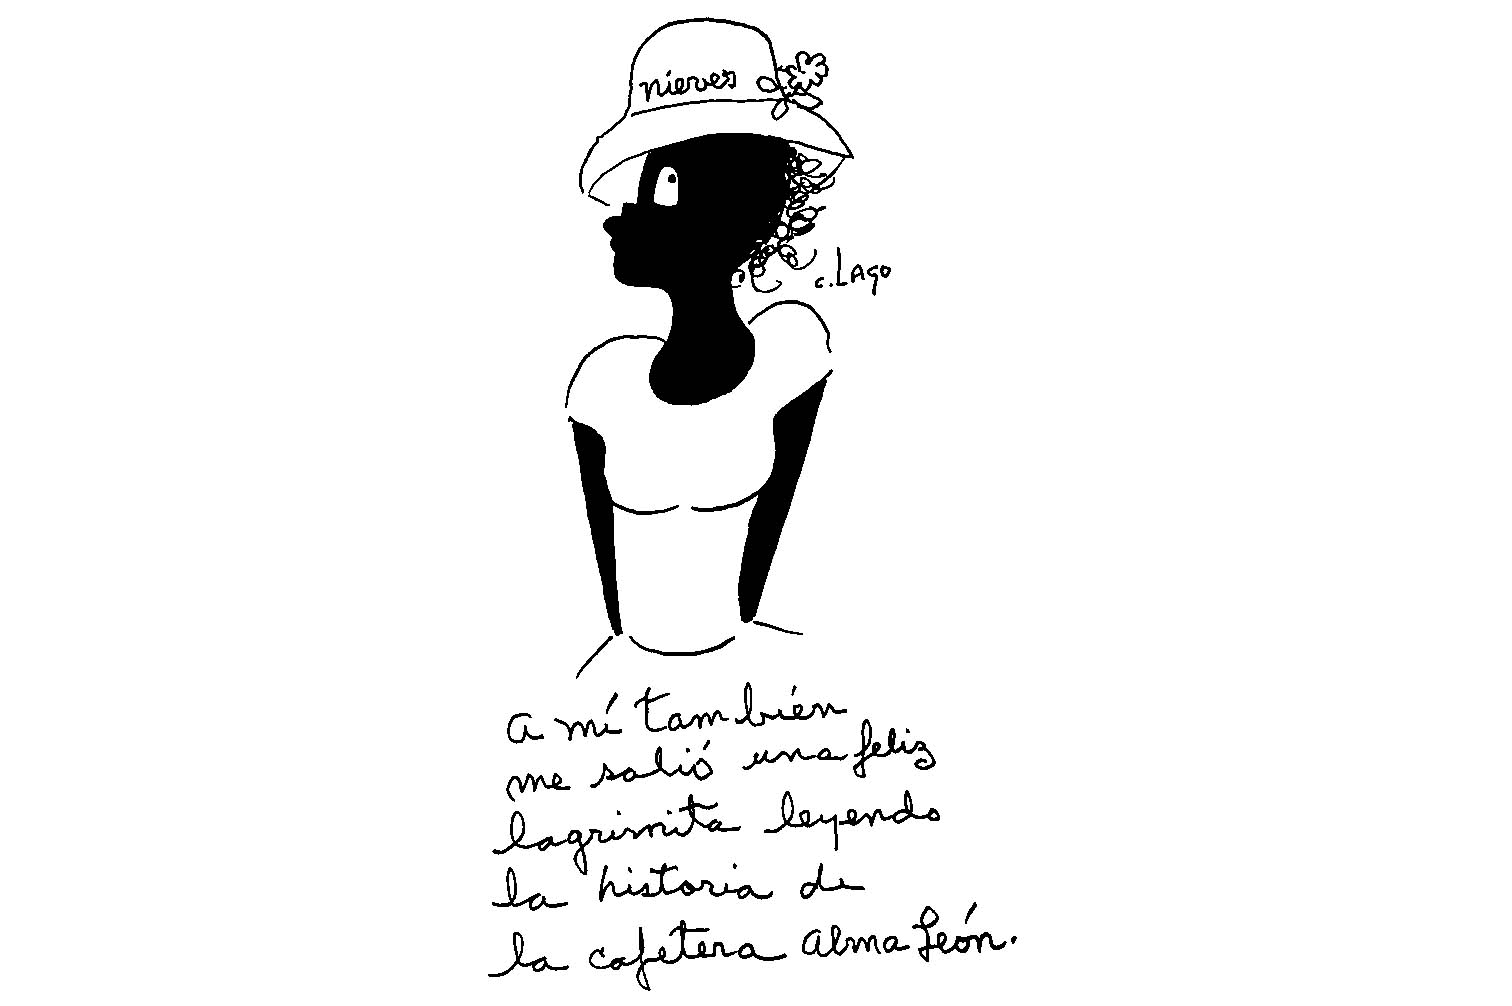 nieves
c. Lago
a mí también
me salió una feliz
lagrimita leyendo
la historia de
la cafetera alma León.